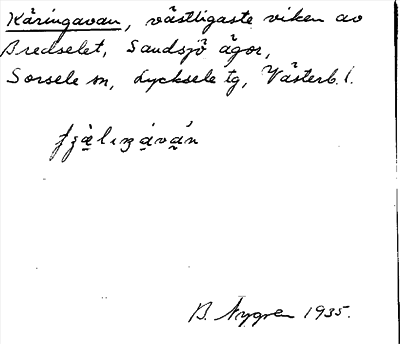 Käringavan, västligaste viken av
Bredselet, Sandsjö ägor,
Sorsele sn, Lycksele tg, Västerb. l.
B. Nygren 1935.